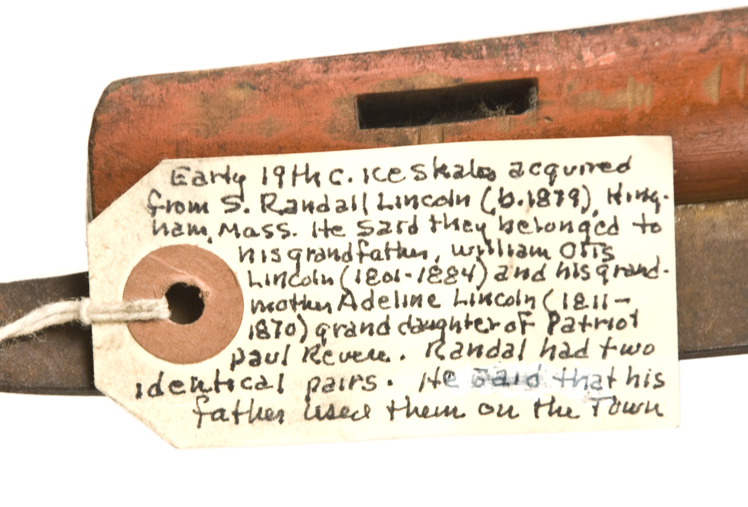 Early 19th c. Ice Skates acquired
from S. Randall Lincoln (b.1879), Hing-
ham, Mass. He said they belonged to
his grandfather, William Otis
Lincoln (1801-1884) and his grand-
mother Adeline Lincoln (1811-
1870) grand daughter of Patriot
Paul Revere. Randal had two
identical pairs. He said that his
father used them on the Town